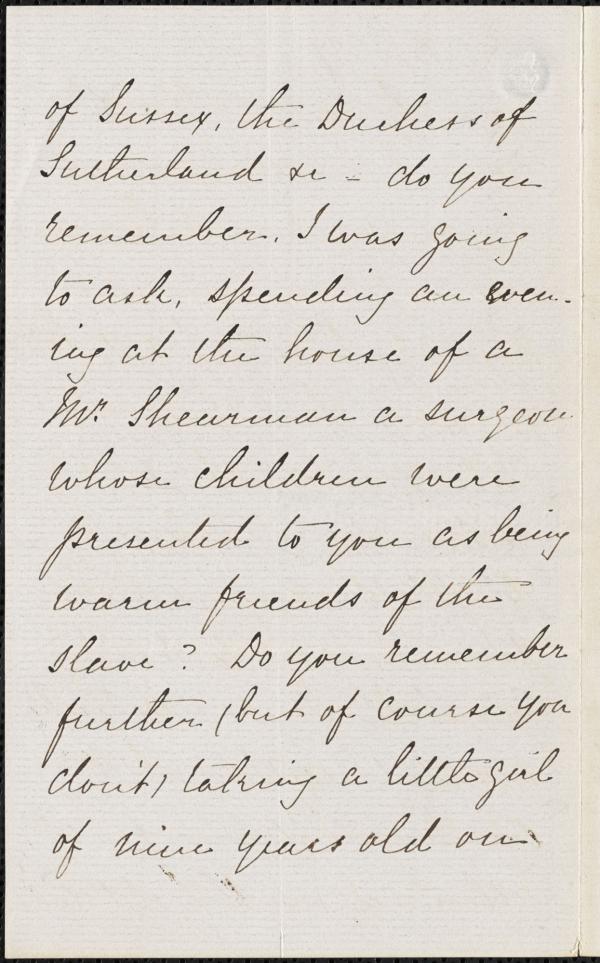 of Sussex, the Duchess of
Sutherland &c - do you
remember, I was going
to ask, spending an even-
ing at the house of a
Mr. Shearman a surgeon
whose children were
presented to you as being
warm friends of the
slave? Do you remember
further (but of course you
don't) taking a little girl
of nine years old on